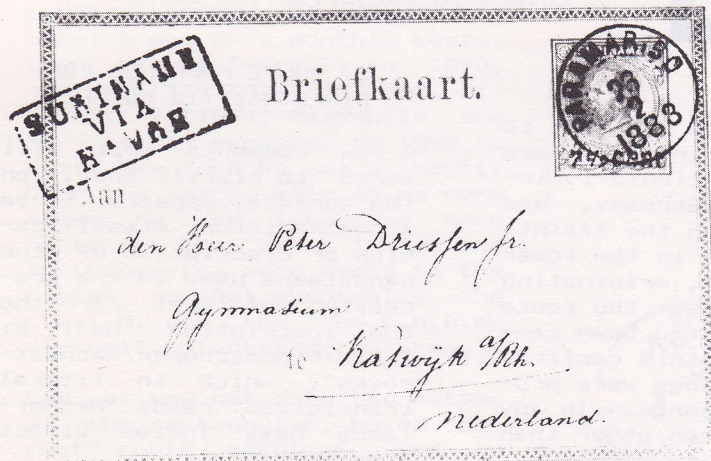 SURINAME
VIA
HAVRE
Briefkaart.
PARAMARIBO
2
1883
7½ CENT
Aan
den Heer Peter Driessen Jr.
Gymnasium
te Katwyk a/Rh.
Nederland.